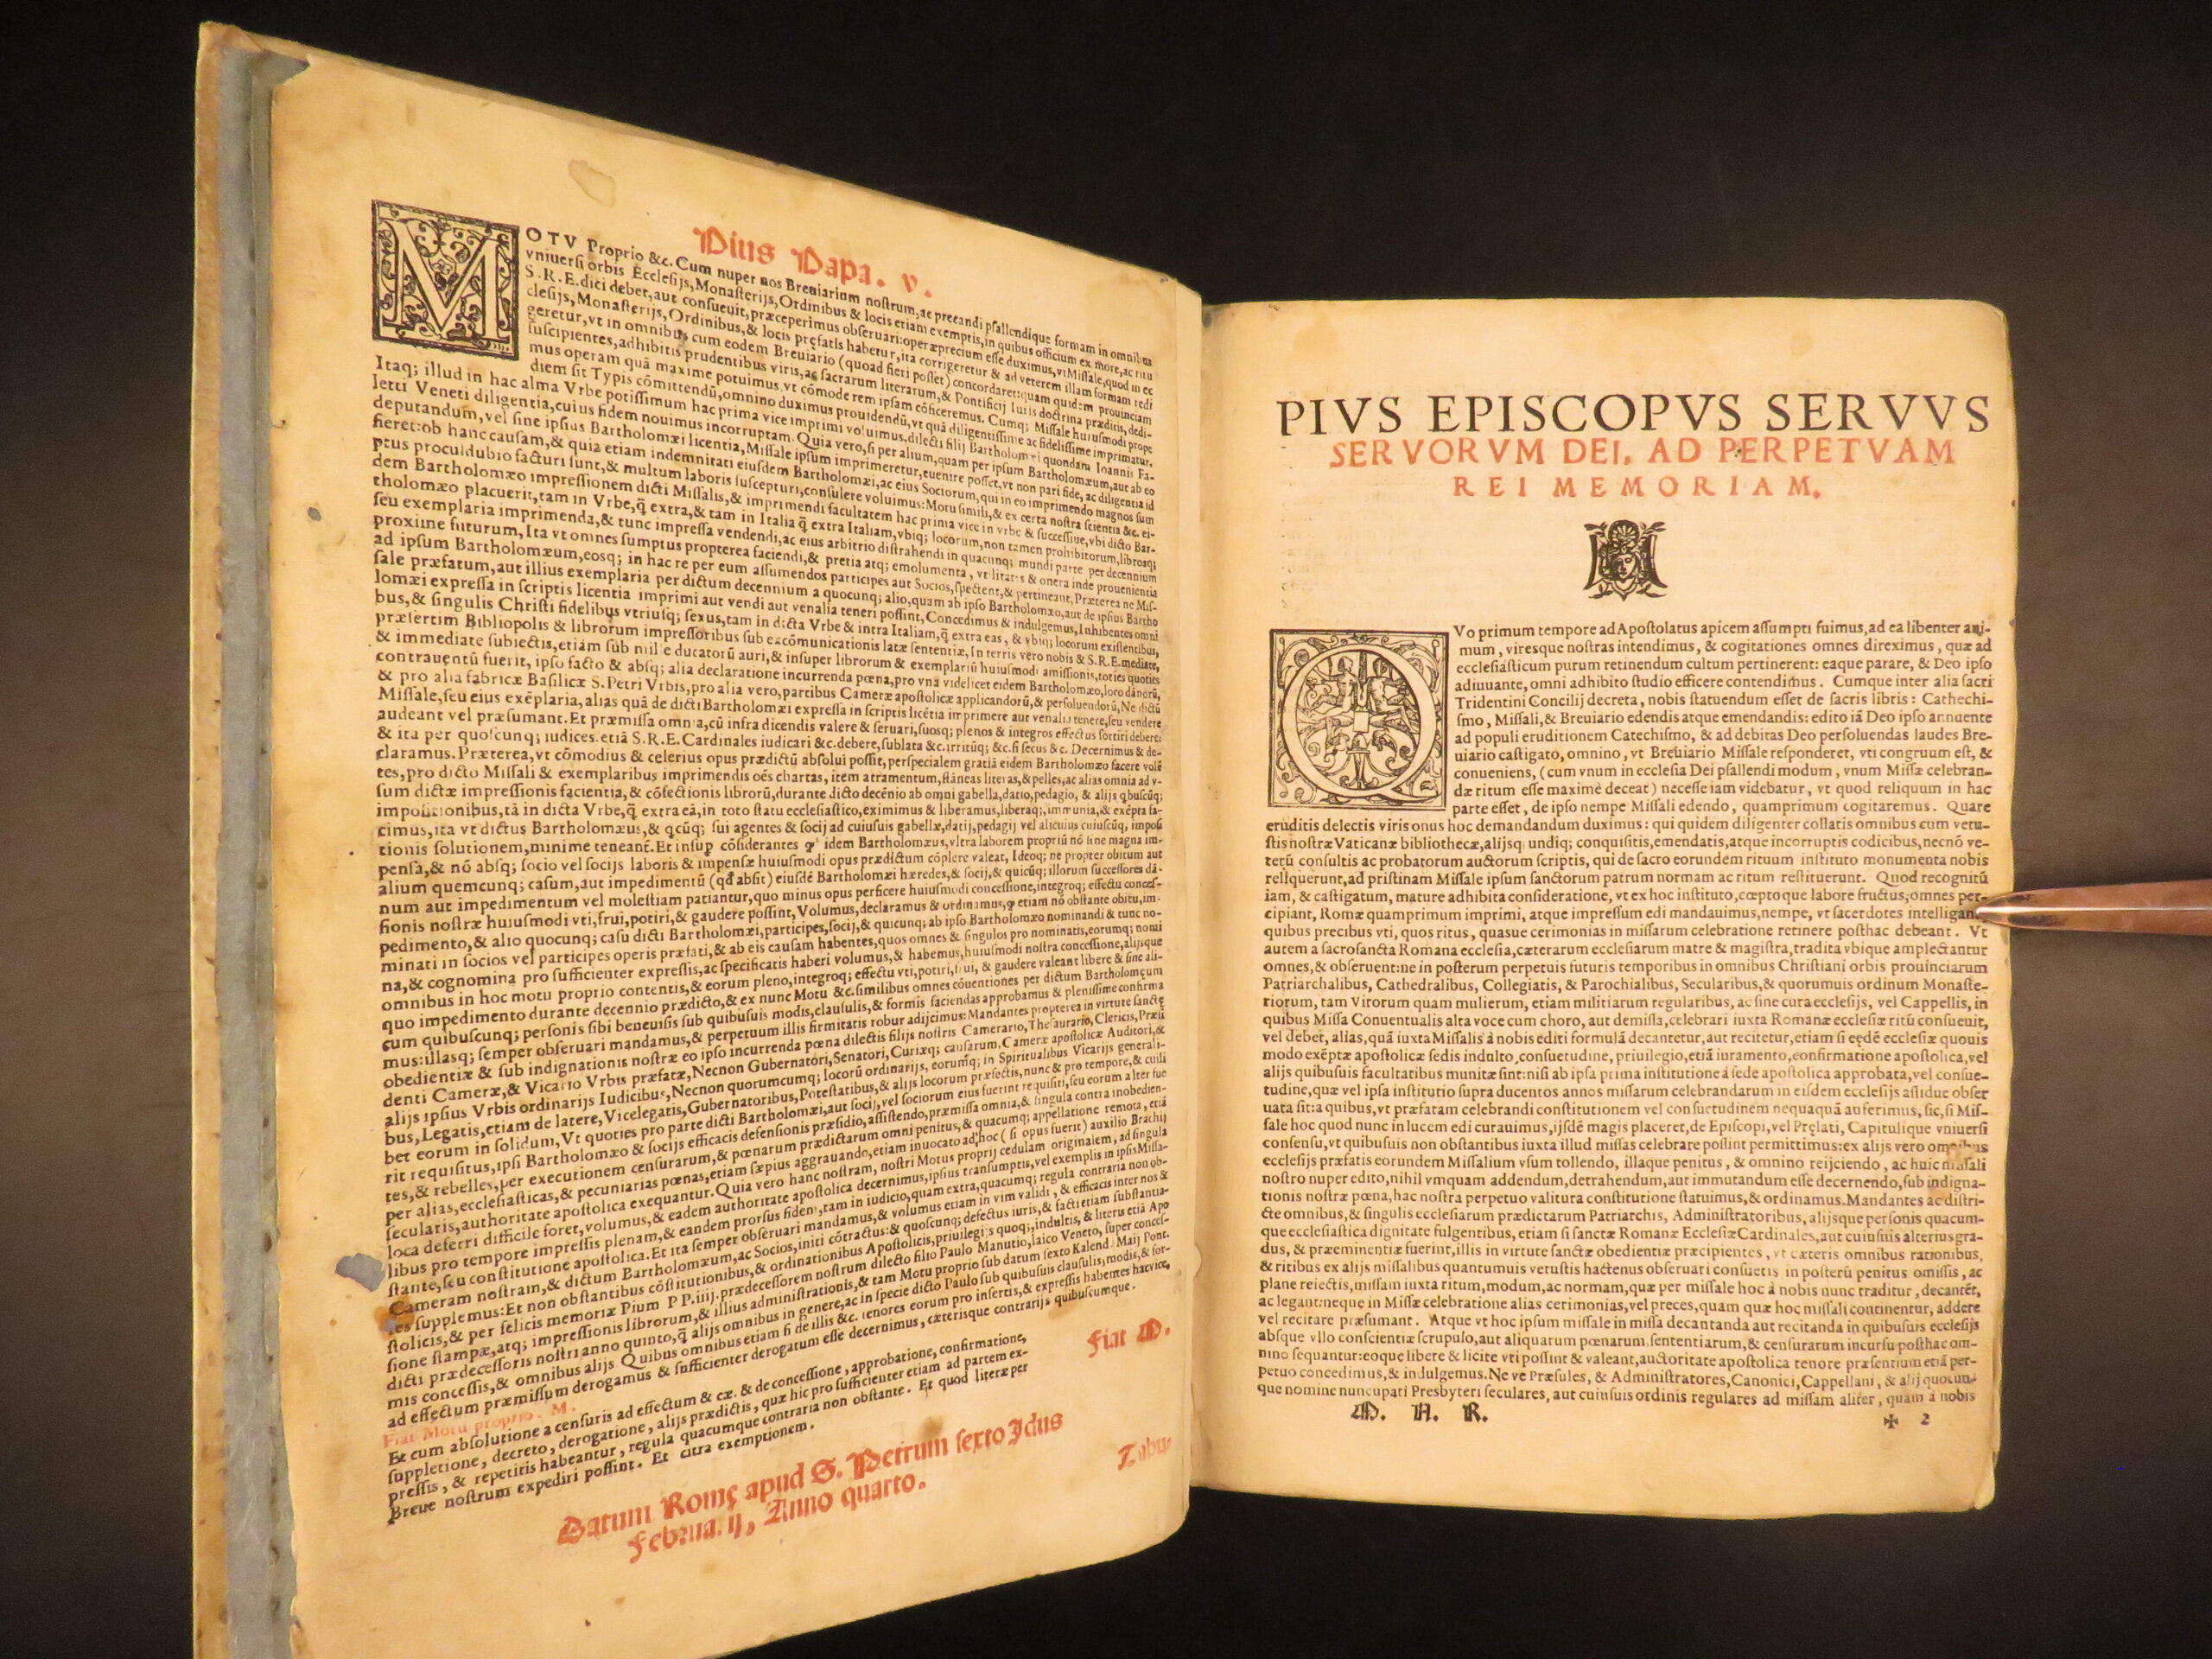 Pius Papa. v.
MOTV Proprio &c. Cum nuper nos Breuiarium nostrum, ac precandi psallendique formam in omnibus
vniuersi orbis Ecclesijs, Monasterijs, Ordinibus & locis etiam exemptis, in quibus officium ex more, ac ritu
S.R.E. dici debet, aut consueuit, præceperimus obseruari: operæprecium esse duximus, vt Missale, quod in ec
clesijs, Monasterijs, Ordinibus, & locis prefatis habetur, ita corrigeretur & ad veterem illam formam redi
geretur, vt in omnibus cum eodem Breuiario (quoad fieri posset) concordaret: quam quidem prouinciam
suscipientes, adhibitis prudentibus viris, ac sacrarum literarum, & Pontificij Iuris doctrina præditis, dedi-
mus operam quā maxime potuimus, vt cōmode rem ipsam cōficeremus. Cumq; Missale huiusmodi prope
diem sit Typis cōmittendū, omnino duximus prouidendū, vt quā diligentissime ac fidelissime imprimatur.
Itaq; illud in hac alma Vrbe potissimum hac prima vice imprimi voluimus, dilecti filij Bartholomei quondam Ioannis Fa-
letti Veneti diligentia, cuius fidem nouimus incorruptam. Quia vero, si per alium, quam per ipsum Bartholomæum, aut ab eo
deputandum, vel sine ipsius Bartholomæi licentia, Missale ipsum imprimeretur, euenire posset, vt non pari fide, ac diligentia id
fieret: ob hanc causam, & quia etiam indemnitati eiusdem Bartholomæi, ac eius Sociorum, qui in eo imprimendo magnos sum
ptus proculdubio facturi sunt, & multum laboris suscepturi, consulere voluimus: Motu simili, & ex certa nostra scientia &c. ei-
dem Bartholomæo impressionem dicti Missalis, & imprimendi facultatem hac prima vice in vrbe & successiue, vbi dicto Bar-
tholomæo placuerit, tam in Vrbe, q̄ extra, & tam in Italia q̄ extra Italiam, vbiq; locorum, non tamen prohibitorum, librosq;
seu exemplaria imprimenda, & tunc impressa vendendi, ac eius arbitrio distrahendi in quacunq; mundi parte per decennium
proxime futurum, Ita vt omnes sumptus propterea faciendi, & pretia atq; emolumenta, vtilitates & onera inde prouenientia
ad ipsum Bartholomæum, eosq; in hac re per eum assumendos participes aut Socios, spectent, & pertineant, Præterea ne Mis-
sale præfatum, aut illius exemplaria per dictum decennium a quocunq; alio, quam ab ipso Bartholomæo, aut de ipsius Bartho
lomæi expressa in scriptis licentia imprimi aut vendi aut venalia teneri possint, Concedimus & indulgemus, Inhibentes omni
bus, & singulis Christi fidelibus vtriusq; sexus, tam in dicta Vrbe & intra Italiam, q̄ extra eas, & vbiq; locorum existentibus,
præsertim Bibliopolis & librorum impressoribus sub excōmunicationis latæ sententiæ, In terris vero nobis & S.R.E. mediate,
& immediate subiectis, etiam sub mille ducatorū auri, & insuper librorum & exemplariū huiusmodi amissionis, toties quoties
contrauentū fuerit, ipso facto & absq; alia declaratione incurrenda pœna, pro vna videlicet eidem Bartholomæo, loco dānorū,
& pro alia fabricæ Basilicæ S. Petri Vrbis, pro alia vero, partibus Cameræ apostolicæ applicandorū, & persoluendorū, Ne dictū
Missale, seu eius exēplaria, alias quā de dicti Bartholomæi expressa in scriptis licētia imprimere aut venalia tenere, seu vendere
audeant vel præsumant. Et præmissa omnia, cū infra dicendis valere & seruari, suosq; plenos & integros effectus sortiri debere:
& ita per quoscunq; iudices. etiā S.R.E. Cardinales iudicari &c. debere, sublata &c. irritūq; &c. si secus &c. Decernimus & de-
claramus. Præterea, vt cōmodius & celerius opus prædictū absolui possit, per specialem gratiā eidem Bartholomæo facere volē
tes, pro dicto Missali & exemplaribus imprimendis oēs chartas, item atramentum, stāneas literas, & pelles, ac alias omnia ad v-
sum dictæ impressionis facientia, & cōfectionis librorū, durante dicto decēnio ab omni gabella, datio, pedagio, & alijs qbuscūq;
impositionibus, tā in dicta Vrbe, q̄ extra eā, in toto statu ecclesiastico, eximimus & liberamus, liberaq;, immunia, & exēpta fa-
cimus, ita vt dictus Bartholomæus, & qcūq; sui agentes & socij ad cuiusuis gabellæ, datij, pedagij vel alicuius cuiuscūq; imposi
tionis solutionem, minime teneant. Et insup cōsiderantes idem Bartholomæus, vltra laborem propriū nō sine magna im-
pensa, & nō absq; socio vel socijs laboris & impensæ huiusmodi opus prædictum cōplere valeat, Ideoq; ne propter obitum aut
alium quemcunq; casum, aut impedimentū (qđ absit) eiusdē Bartholomæi hæredes, & socij, & quicūq; illorum successores dā-
num aut impedimentum vel molestiam patiantur, quo minus opus perficere huiusmodi concessione, integroq; effectu conces-
sionis nostræ huiusmodi vti, frui, potiri, & gaudere possint, Volumus, declaramus & ordinamus, etiam nō obstante obitu, im-
pedimento, & alio quocunq; casu dicti Bartholomæi, participes, socij, & quicunq; ab ipso Bartholomæo nominandi & tunc no-
minati in socios vel participes operis præfati, & ab eis causam habentes, quos omnes & singulos pro nominatis, eorumq; nomi
na, & cognomina pro sufficienter expressis, ac specificatis haberi volumus, & habemus, huiusmodi nostra concessione, alijsque
omnibus in hoc motu proprio contentis, & eorum pleno, integroq; effectu vti, potiri, frui, & gaudere valeant libere & sine ali-
quo impedimento durante decennio prædicto, & ex nunc Motu &c. similibus omnes cōuentiones per dictum Bartholomæum
cum quibuscunq; personis sibi beneuisis sub quibusuis modis, clausulis, & formis faciendas approbamus & plenissime confirma
mus: illasq; semper obseruari mandamus, & perpetuum illis firmitatis robur adijcimus: Mandantes propterea in virtute sanctę
obedientiæ & sub indignationis nostræ eo ipso incurrenda pœna dilectis filijs nostris Camerario, Thesaurario, Clericis, Præsi
denti Cameræ, & Vicario Vrbis præfatæ, Necnon Gubernatori, Senatori, Curiæq; causarum, Cameræ apostolicæ Auditori, &
alijs ipsius Vrbis ordinarijs Iudicibus, Necnon quorumcumq; locorū ordinarijs, eorumq; in Spiritualibus Vicarijs generali-
bus, Legatis, etiam de latere, Vicelegatis, Gubernatoribus, Potestatibus, & alijs locorum præfectis, nunc & pro tempore, & cuili
bet eorum in solidum, Vt quoties pro parte dicti Bartholomæi, aut socij, vel sociorum eius fuerint requisiti, seu eorum alter fue
rit requisitus, ipsi Bartholomæo & socijs efficacis defensionis præsidio, assistendo, præmissa omnia, & singula contra inobedien-
tes, & rebelles, per executionem censurarum, & pœnarum prædictarum omni penitus, & quacumq; appellatione remota, etiā
per alias, ecclesiasticas, & pecuniarias pœnas, etiam sæpius aggrauando, etiam inuocato ad hoc (si opus fuerit) auxilio Brachij
secularis, authoritate apostolica exequantur. Quia vero hanc nostram, nostri Motus proprij cedulam originalem, ad singula
loca deferri difficile foret, volumus, & eadem authoritate apostolica decernimus, ipsius transumptis, vel exemplis in ipsis Missa-
libus pro tempore impressis plenam, & eandem prorsus fidem, tam in iudicio, quam extra, quacumq; regula contraria non ob-
stante, seu constitutione apostolica. Et ita semper obseruari mandamus, & volumus etiam in vim validi, & efficacis inter nos &
Cameram nostram, & dictum Bartholomæum, ac Socios, initi cōtractus: & quoscunq; defectus iuris, & facti etiam substantia-
les supplemus: Et non obstantibus cōstitutionibus, & ordinationibus Apostolicis, priuilegijs quoq;, indultis, & literis etiā Apo
stolicis, & per felicis memoriæ Pium PP. iiij. prædecessorem nostrum dilecto filio Paulo Manutio, laico Veneto, super conces-
sione stampæ, atq; impressionis librorum, & illius administrationis, & tam Motu proprio sub datum sexto Kalend. Maij Pont.
dicti prædecessoris nostri anno quinto, q̄ alijs omnibus in genere, ac in specie dicto Paulo sub quibusuis clausulis, modis, & for-
mis concessis, & omnibus alijs Quibus omnibus etiam si de illis &c. tenores eorum pro insertis, & expressis habentes hac vice,
ad effectum præmissum derogamus & sufficienter derogatum esse decernimus, cæterisque contrarijs quibuscumque.
Fiat Motu proprio. M.
Et cum absolutione a censuris ad effectum & cæ. & de concessione, approbatione, confirmatione,
suppletione, decreto, derogatione, alijs prædictis, quæ hic pro sufficienter etiam ad partem ex-
pressis, & repetitis habeantur, regula quacumque contraria non obstante. Et quod literæ per
Breue nostrum expediri possint. Et citra exemptionem.
Fiat M.
Datum Romę apud S. Petrum sexto Idus
Februa. ij, Anno quarto.
PIVS EPISCOPVS SERVVS
SERVORVM DEI. AD PERPETVAM
REI MEMORIAM.
QVo primum tempore ad Apostolatus apicem assumpti fuimus, ad ea libenter ani-
mum, viresque nostras intendimus, & cogitationes omnes direximus, quæ ad
ecclesiasticum purum retinendum cultum pertinerent: eaque parare, & Deo ipso
adiuuante, omni adhibito studio efficere contendimus. Cumque inter alia sacri
Tridentini Concilij decreta, nobis statuendum esset de sacris libris: Cathechi-
smo, Missali, & Breuiario edendis atque emendandis: edito iā Deo ipso annuente
ad populi eruditionem Catechismo, & ad debitas Deo persoluendas laudes Bre-
uiario castigato, omnino, vt Breuiario Missale responderet, vti congruum est, &
conueniens, (cum vnum in ecclesia Dei psallendi modum, vnum Missæ celebran-
dæ ritum esse maximè deceat) necesse iam videbatur, vt quod reliquum in hac
parte esset, de ipso nempe Missali edendo, quamprimum cogitaremus. Quare
eruditis delectis viris onus hoc demandandum duximus: qui quidem diligenter collatis omnibus cum vetu-
stis nostræ Vaticanæ bibliothecæ, alijsq; undiq; conquisitis, emendatis, atque incorruptis codicibus, necnō ve-
terū consultis ac probatorum auctorum scriptis, qui de sacro eorundem rituum instituto monumenta nobis
reliquerunt, ad pristinam Missale ipsum sanctorum patrum normam ac ritum restituerunt. Quod recognitū
iam, & castigatum, mature adhibita consideratione, vt ex hoc instituto, cœptoque labore fructus, omnes per-
cipiant, Romæ quamprimum imprimi, atque impressum edi mandauimus, nempe, vt sacerdotes intelligant,
quibus precibus vti, quos ritus, quasue cerimonias in missarum celebratione retinere posthac debeant. Vt
autem a sacrosancta Romana ecclesia, cæterarum ecclesiarum matre & magistra, tradita vbique amplectantur
omnes, & obseruent: ne in posterum perpetuis futuris temporibus in omnibus Christiani orbis prouinciarum
Patriarchalibus, Cathedralibus, Collegiatis, & Parochialibus, Secularibus, & quorumuis ordinum Monaste-
riorum, tam Virorum quam mulierum, etiam militiarum regularibus, ac sine cura ecclesijs, vel Cappellis, in
quibus Missa Conuentualis alta voce cum choro, aut demissa, celebrari iuxta Romanæ ecclesiæ ritū consueuit,
vel debet, alias, quā iuxta Missalis à nobis editi formulā decantetur, aut recitetur, etiam si eędē ecclesiæ quouis
modo exēptæ apostolicæ sedis indulto, consuetudine, priuilegio, etiā iuramento, confirmatione apostolica, vel
alijs quibusuis facultatibus munitæ sint: nisi ab ipsa prima institutione à sede apostolica approbata, vel consue-
tudine, quæ vel ipsa institutio supra ducentos annos missarum celebrandarum in eisdem ecclesijs assidue obser
uata sit: a quibus, vt præfatam celebrandi constitutionem vel consuetudinem nequaquā auferimus, sic, si Mis-
sale hoc quod nunc in lucem edi curauimus, ijsdē magis placeret, de Episcopi, vel Pręlati, Capitulique vniuersi
consensu, vt quibusuis non obstantibus iuxta illud missas celebrare possint permittimus: ex alijs vero omnibus
ecclesijs præfatis eorundem Missalium vsum tollendo, illaque penitus, & omnino reijciendo, ac huic missali
nostro nuper edito, nihil vmquam addendum, detrahendum, aut immutandum esse decernendo, sub indigna-
tionis nostræ pœna, hac nostra perpetuo valitura constitutione statuimus, & ordinamus. Mandantes ac distri-
cte omnibus, & singulis ecclesiarum prædictarum Patriarchis, Administratoribus, alijsque personis quacum-
que ecclesiastica dignitate fulgentibus, etiam si sanctæ Romanæ Ecclesiæ Cardinales, aut cuiusuis alterius gra-
dus, & præeminentiæ fuerint, illis in virtute sanctæ obedientiæ præcipientes, vt cæteris omnibus rationibus,
& ritibus ex alijs missalibus quantumuis vetustis hactenus obseruari consuetis in posterū penitus omissis, ac
plane reiectis, missam iuxta ritum, modum, ac normam, quæ per missale hoc à nobis nunc traditur, decantēt,
ac legant: neque in Missæ celebratione alias cerimonias, vel preces, quam quæ hoc missali continentur, addere
vel recitare præsumant. Atque vt hoc ipsum missale in missa decantanda aut recitanda in quibusuis ecclesijs
absque vllo conscientiæ scrupulo, aut aliquarum pœnarum, sententiarum, & censurarum incursu posthac om-
nino sequantur: eoque libere & licite vti possint & valeant, auctoritate apostolica tenore præsentium etiā per-
petuo concedimus, & indulgemus. Ne ve Præsules, & Administratores, Canonici, Cappellani, & alij quocun-
que nomine nuncupati Presbyteri seculares, aut cuiusuis ordinis regulares ad missam aliter, quam à nobis
M. N. R.
✠ 2